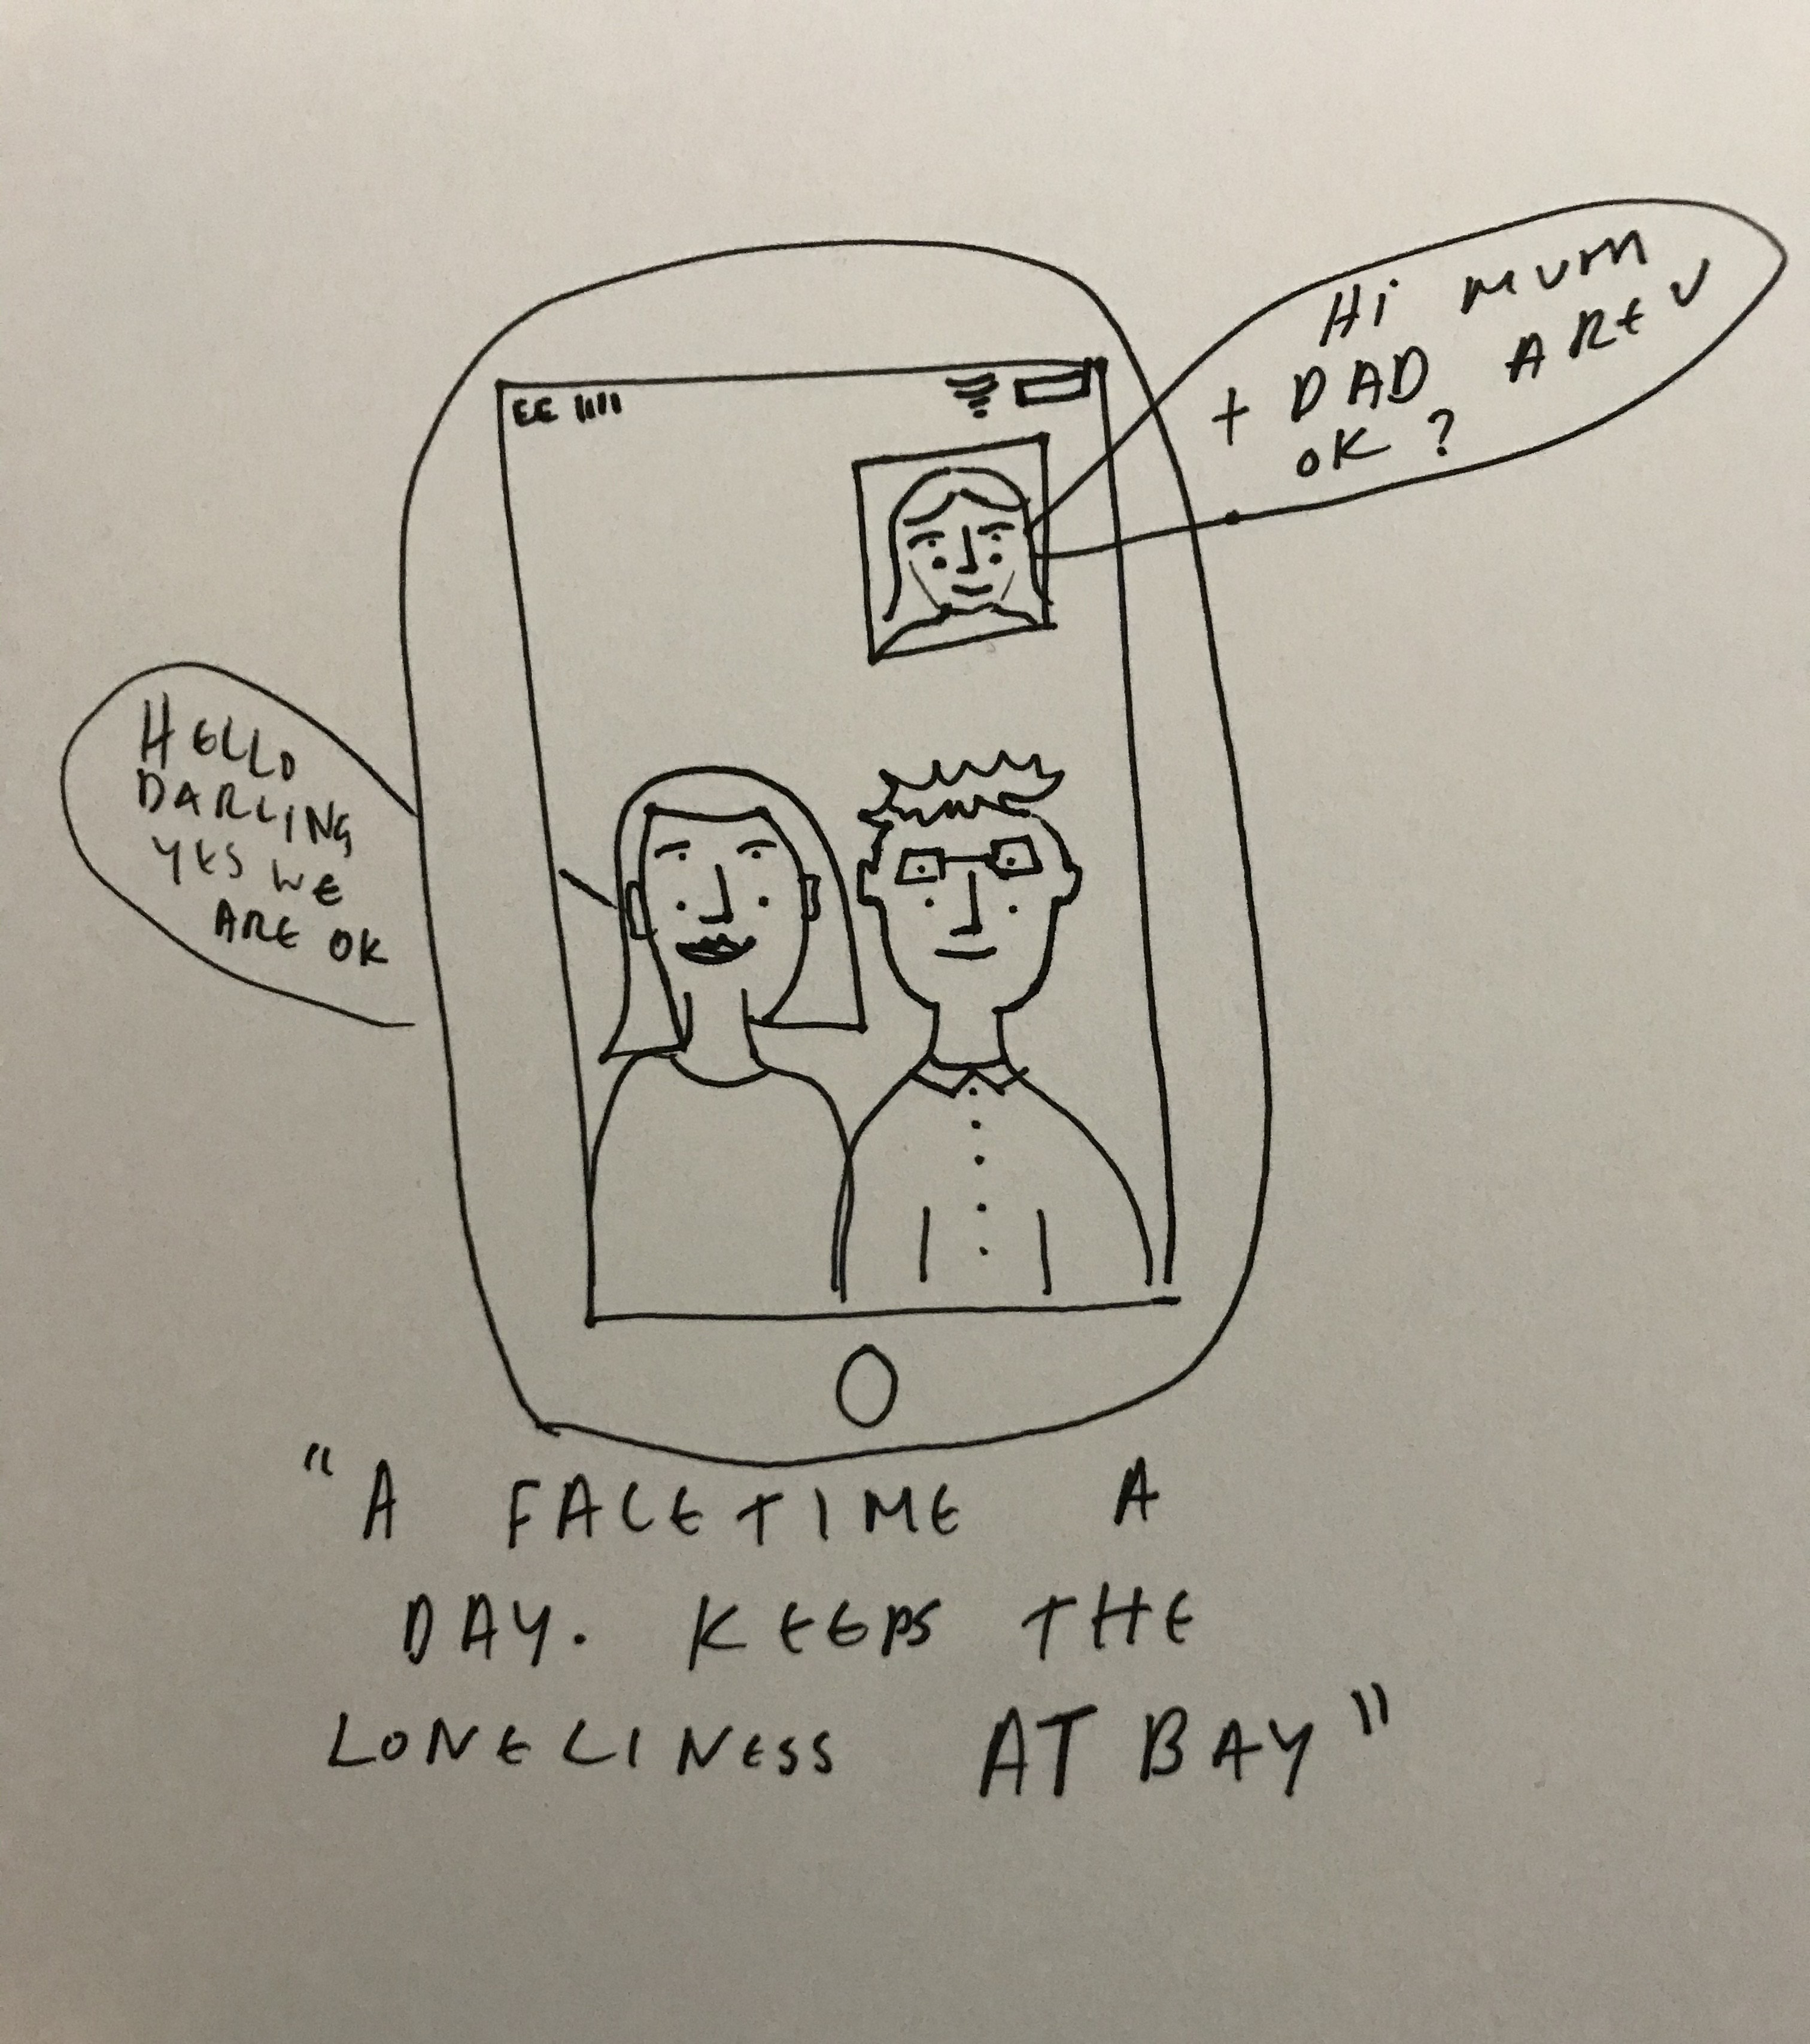 Hi MUM
+ DAD ARE U
OK ?
EE
HELLO
DARLING
YES WE
ARE OK
"A FACETIME A
DAY. KEEPS THE
LONELINESS AT BAY"